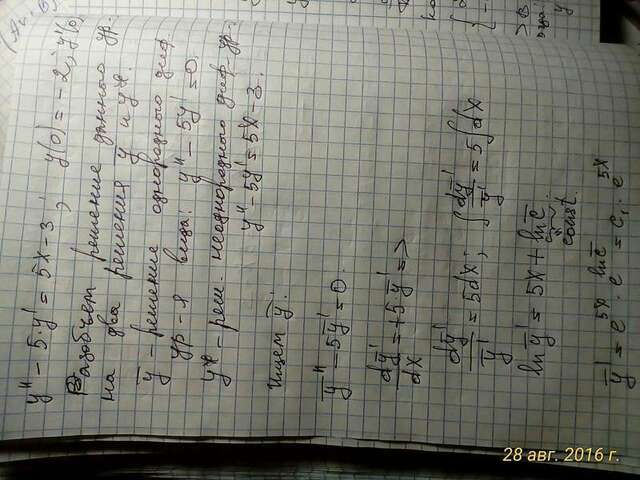 y'' - 5·y' = 5x - 3 ; y(0) = -2 ; y'(0
Разобъем решение данного ур-
на два решения y и y*.
ȳ - решение однородного диф
ур-я вида: y'' - 5y' = 0
y* - реш. неоднородного диф-ур-
y'' - 5y' = 5x - 3.
Ищем ȳ:
ȳ'' - 5ȳ' = 0.
dȳ'/dx = +5·ȳ' =>
dȳ'/ȳ' = 5dx ; ∫dȳ'/ȳ' = 5∫dx
ln ȳ' = 5x + ln c̄
const.
ȳ' = e^5x · e^ln c̄ = c₁ · e^5x
28 авг. 2016 г.